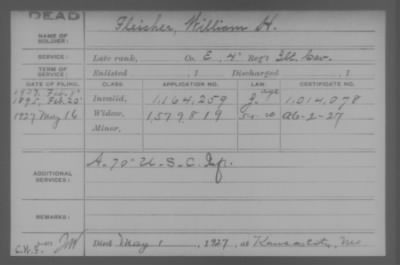 DEAD
NAME OF SOLDIER: Fleisher, William H.
SERVICE: Late rank, Co. E, 4" Reg't Ill. Cav.
TERM OF SERVICE: Enlisted , 1 Discharged , 1
DATE OF FILING. CLASS. APPLICATION NO. LAW. CERTIFICATE NO.
1895, Feb. 20 Invalid, 1,164,259 1,014,078
1927 May 16 Widow, 1,579,819 a6-2-27
Minor,
ADDITIONAL SERVICES: A. 70" U.S.C. Inf.
REMARKS:
Died May 1, 1927, at Kansas City, Mo.